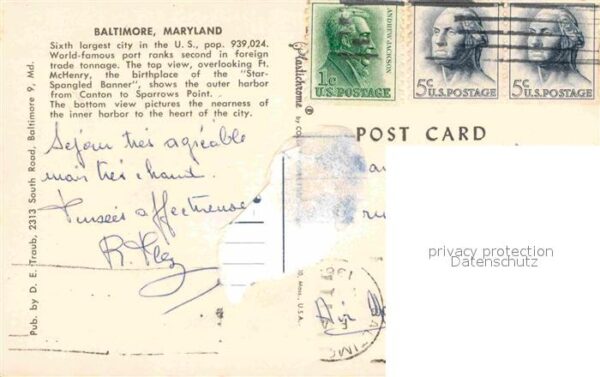 BALTIMORE, MARYLAND
Sixth largest city in the U.S., pop. 939,024.
World-famous port ranks second in foreign
trade tonnage. The top view, overlooking Ft.
McHenry, the birthplace of the "Star-
Spangled Banner", shows the outer harbor
from Canton to Sparrows Point.
The bottom view pictures the nearness of
the inner harbor to the heart of the city.
Séjour très agréable
mais très chaud.
Pensées affectueuses
R.
Pub. by D. E. Traub, 2313 South Road, Baltimore 9, Md.
Plastichrome ® by
Mass., U.S.A.
1¢
ANDREW JACKSON
U.S. POSTAGE
5¢
U.S. POSTAGE
5¢
U.S. POSTAGE
POST CARD
privacy protection
Datenschutz
Air